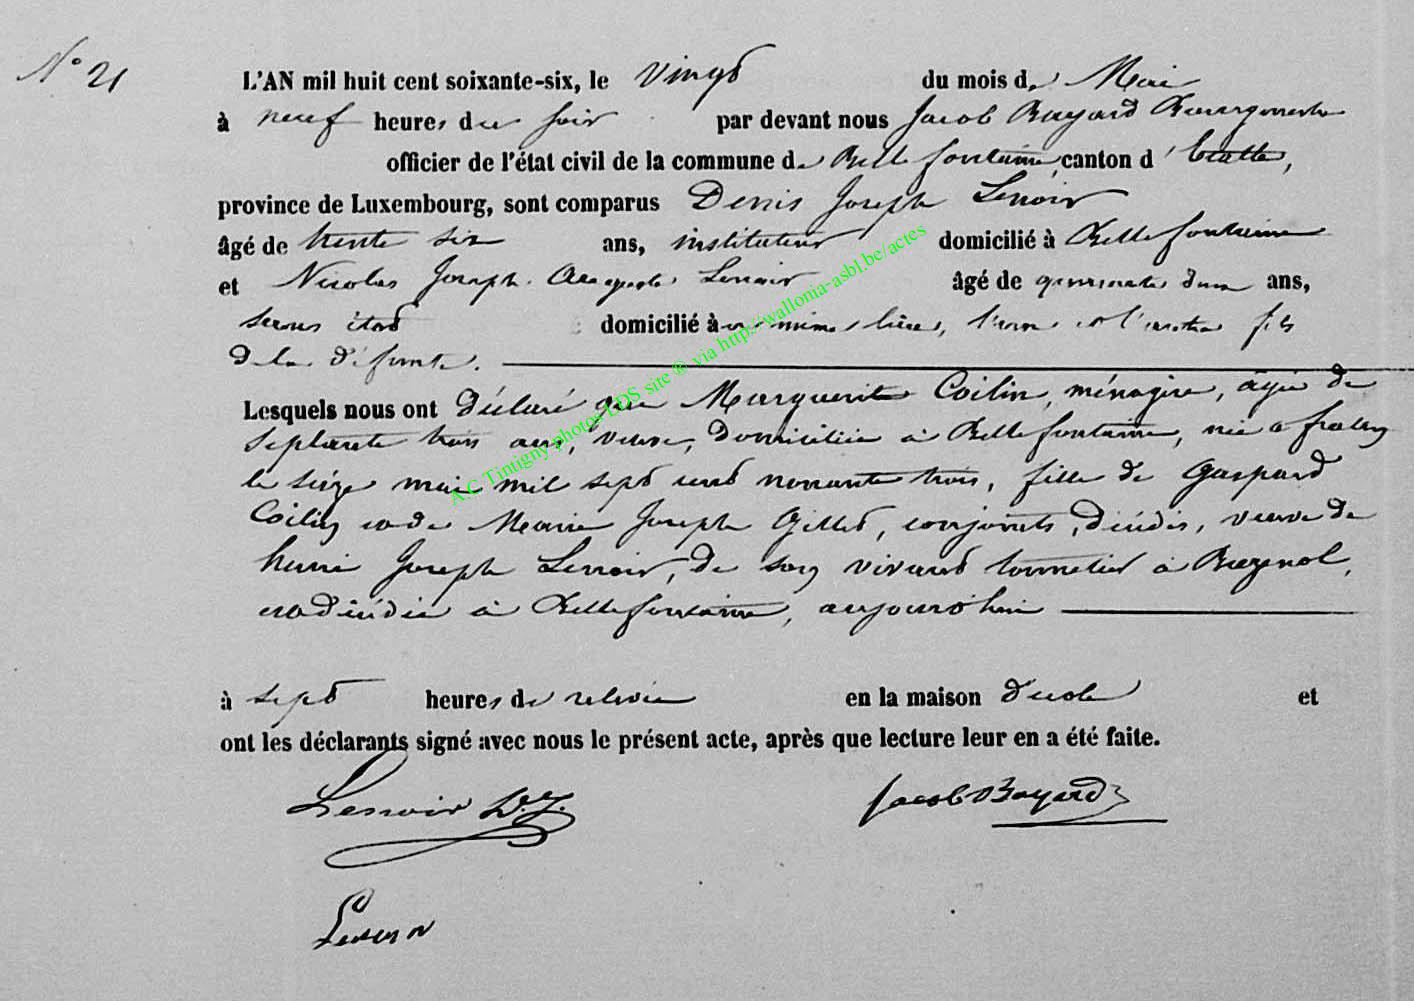 N° 21
L'AN mil huit cent soixante-six, le vingt du mois de Mai
à neuf heures du soir par devant nous Jacob Bayard Bourgmestre
officier de l'état civil de la commune de Bellefontaine, canton d'Etalle,
province de Luxembourg, sont comparus Denis Joseph Lenoir
âgé de trente six ans, instituteur domicilié à Bellefontaine
et Nicolas Joseph Auguste Lenoir âgé de quarante deux ans,
sans état domicilié à même lieu, l'un et l'autre fils
de la défunte.
Lesquels nous ont déclaré que Marguerite Coilin, ménagère, âgée de
septante trois ans, veuve, domiciliée à Bellefontaine, née à
le seize mai mil sept cent nonante trois, fille de Gaspard
Coilin et de Marie Joseph Gillet, conjoints, décédés, veuve de
henri Joseph Lenoir, de son vivant tonnelier à Buzenol,
est décédée à Bellefontaine, aujourd'hui
à sept heures de relevée en la maison d'école et
ont les déclarants signé avec nous le présent acte, après que lecture leur en a été faite.
Lenoir D.J. Jacob Bayard
Lenoir
A.C Tintigny photos LDS site ® via http://wallonia-asbl.be/actes